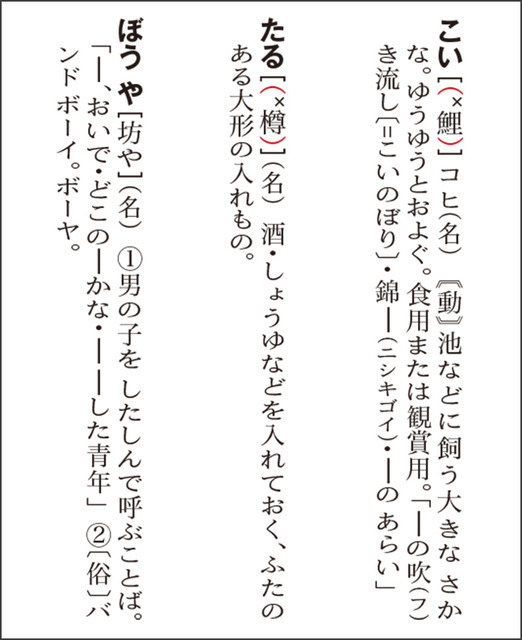 こい[(×鯉)]コヒ(名) 《動》池などに飼う大きな さか
な。ゆうゆうとおよぐ。食用または観賞用。「―の吹(フ)
き流し〔=こいのぼり〕・錦―(ニシキゴイ)・―の あらい」
たる[(×樽)](名) 酒・しょうゆなどを入れておく、ふたの
ある大形の入れもの。
ぼう や[坊や](名) ①男の子を したしんで呼ぶことば。
「―、おいで・どこの―かな・――した青年」 ②〔俗〕バ
ンド ボーイ。ボーヤ。